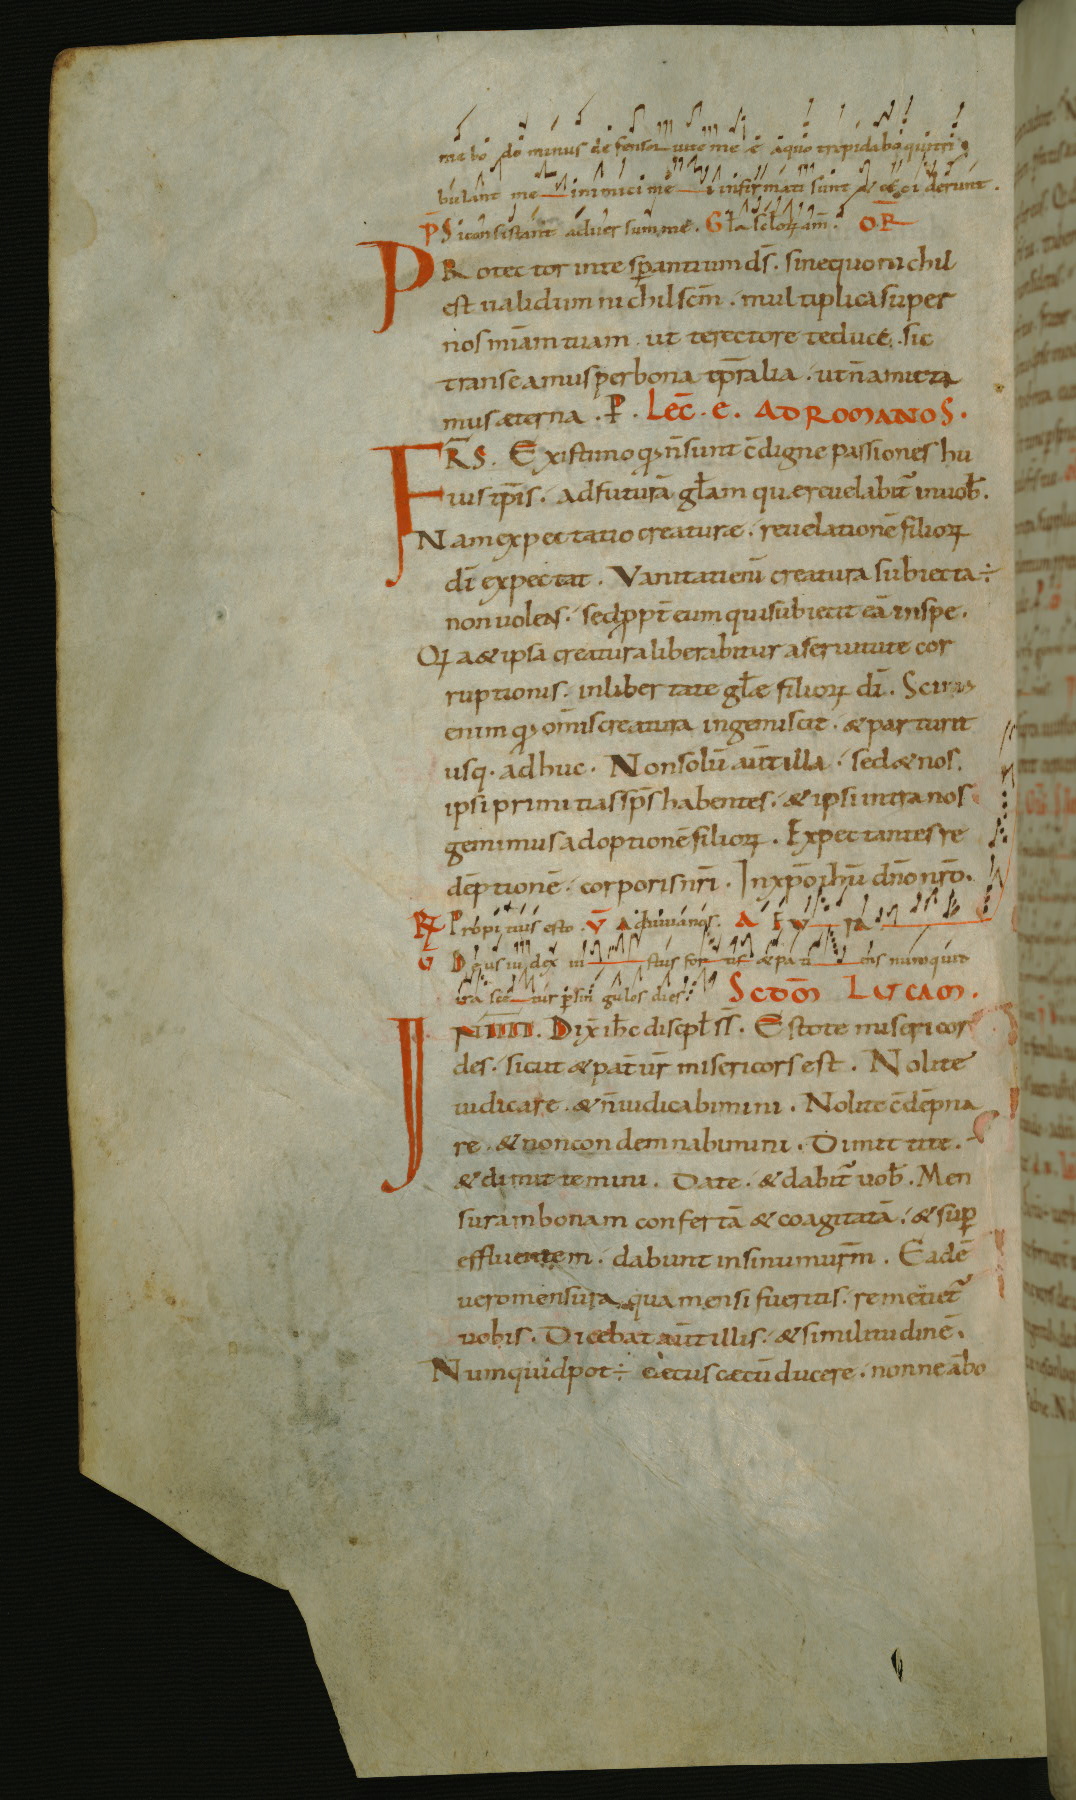 mebo do minus defensor uite me e aquo trepidabo qui tri
bulant me inimici me i infirmati sunt & ceciderunt.
P̄S iconsistant aduer summe. Gl̄a sclorꝝ am̄. OR̄
PRotector inte sꝑantium ds̄. sinequo nichil
est ualidum nichil scm̄. multiplica super
nos miam̄ tuam. ut terectore te duce. sic
transeamus per bona tp̄ralia. ut n̄ amitta
mus æterna. P̄. Lec̄. e. AD ROMANOS.
FR̄S. Existimo qđ n̄ sunt c̄digne passiones hu
ius tp̄is. ad futurā gl̄am quæ reuelabit᷑ inuob̄.
Nam expectatio creaturæ. reuelationē filiorꝝ
dī expectat. Vanitati enī creatura subiecta ÷
non uolens. sed ppt̄ eum qui subiecit eā inspe.
Qꝫ a & ipsa creatura liberabitur a seruitute cor
ruptionis. in libertate gl̄æ filiorꝝ dī. Scimus
enim qđ omīs creatura ingemiscit. & parturit
usq. adhuc. Non solū aūt illa. sed & nos.
ipsi primitias sp̄s habentes. & ipsi intra nos
gemimus adoptionē filiorꝝ. Expectantes re
dēptionē. corporis nr̄i. Inxp̄o ihū dn̄o nr̄o.
℟ Propitius esto. V̄ Adiuuanos. A EV IA
V̄ Deus iudex iustus fortis & patiens numquid
irascetur ꝑ singulos dies. SCDŌM LVCAM.
IN illi. Dix̄ ih̄c discipl̄ s̄s. Estote misericor
des. sicut & pat̄ ur̄ misericors est. Nolite
iudicare. & n̄ iudicabimini. Nolite c̄dēpna
re. & non condemnabimini. Dimittite.
& dimittemini. Date. & dabit᷑ uob̄. Men
suram bonam confertā & coagitatā. & suꝑ
effluentem. dabunt in sinum ur̄m. Eadē
uero mensura qua mensi fueritis. remetiet᷑
uobis. Dicebat aūt illis. & similitudinē.
Numquid pot ÷ cæcus cæcū ducere. nonne ābo